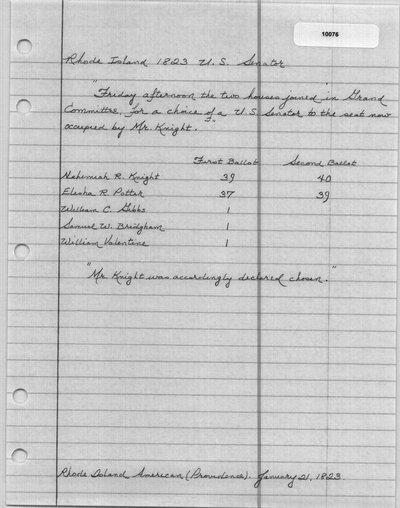 10076
Rhode Island 1823 U.S. Senator
"Friday afternoon the two houses joined in Grand
Committee, for a choice of a U.S. Senator to the seat now
occupied by Mr. Knight."
First Ballot Second Ballot
Nehemiah R. Knight 39 40
Elisha R. Potter 37 39
William C. Gibbs 1
Samuel W. Bridgham 1
William Valentine 1
"Mr. Knight was accordingly declared chosen."
Rhode Island American (Providence). January 21, 1823.